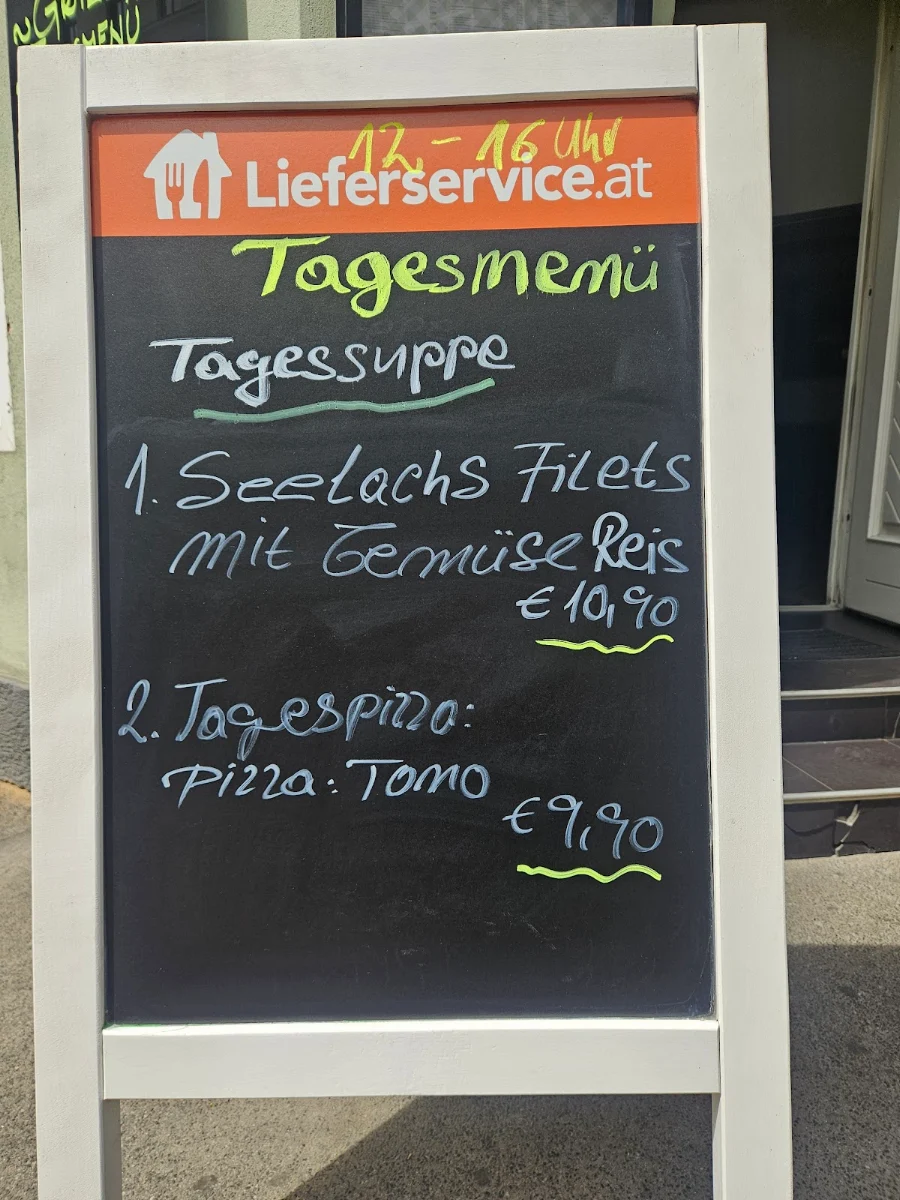 12 - 16 Uhr
Lieferservice.at
Tagesmenü
Tagessuppe
1. Seelachs Filets
mit Gemüse Reis
€ 10,90
2. Tagespizza:
Pizza: Tono
€ 9,90